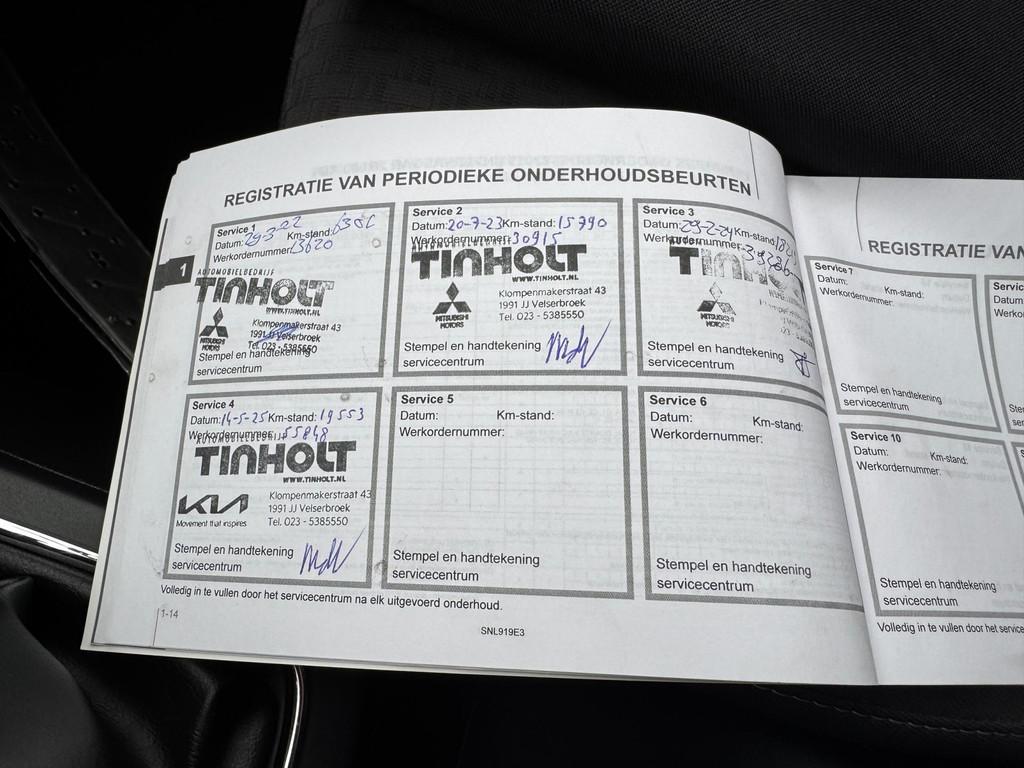 REGISTRATIE VAN PERIODIEKE ONDERHOUDSBEURTEN
1
Service 1
Datum: 29-3-22 Km-stand:
Werkordernummer: 13620
AUTOMOBIELBEDRIJF
TINHOLT
WWW.TINHOLT.NL
MITSUBISHI MOTORS
Klompenmakerstraat 43
1991 JJ Velserbroek
Tel. 023 - 5385550
Stempel en handtekening
servicecentrum
Service 2
Datum: 20-7-23 Km-stand: 15790
Werkordernummer: 30915
AUTOMOBIELBEDRIJF
TINHOLT
WWW.TINHOLT.NL
MITSUBISHI MOTORS
Klompenmakerstraat 43
1991 JJ Velserbroek
Tel. 023 - 5385550
Stempel en handtekening
servicecentrum
Service 3
Datum: 29-2-24 Km-stand:
Werkordernummer:
TINHOLT
MITSUBISHI MOTORS
Stempel en handtekening
servicecentrum
Service 4
Datum: 14-5-25 Km-stand: 19553
Werkordernummer: 55848
AUTOMOBIELBEDRIJF
TINHOLT
WWW.TINHOLT.NL
KIA
Movement that inspires
Klompenmakerstraat 43
1991 JJ Velserbroek
Tel. 023 - 5385550
Stempel en handtekening
servicecentrum
Service 5
Datum: Km-stand:
Werkordernummer:
Stempel en handtekening
servicecentrum
Service 6
Datum: Km-stand:
Werkordernummer:
Stempel en handtekening
servicecentrum
Volledig in te vullen door het servicecentrum na elk uitgevoerd onderhoud.
1-14
SNL919E3
REGISTRATIE VAN
Service 7
Datum: Km-stand:
Werkordernummer:
Stempel en handtekening
servicecentrum
Service 10
Datum: Km-stand:
Werkordernummer:
Stempel en handtekening
servicecentrum
Volledig in te vullen door het service